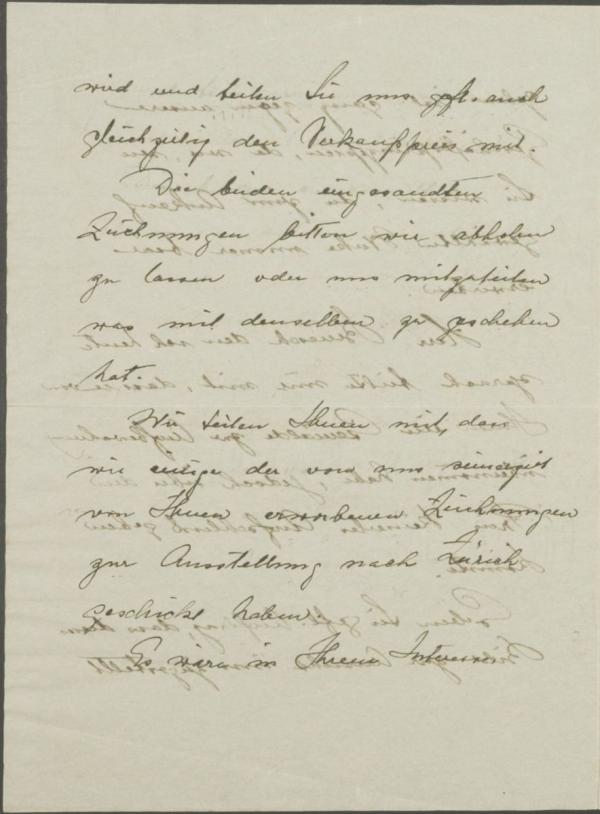 wird und teilen Sie uns gefl. auch
gleichzeitig den Verkaufspreis mit.
Die beiden eingesandten
Zeichnungen bitten wir abholen
zu lassen oder uns mitzuteilen
was mit denselben zu geschehen
hat.
Wir teilen Ihnen mit, dass
wir einige der von uns seinerzeit
von Ihnen erworbenen Zeichnungen
zur Ausstellung nach Zürich
geschickt haben.
Es wäre in Ihrem Interesse